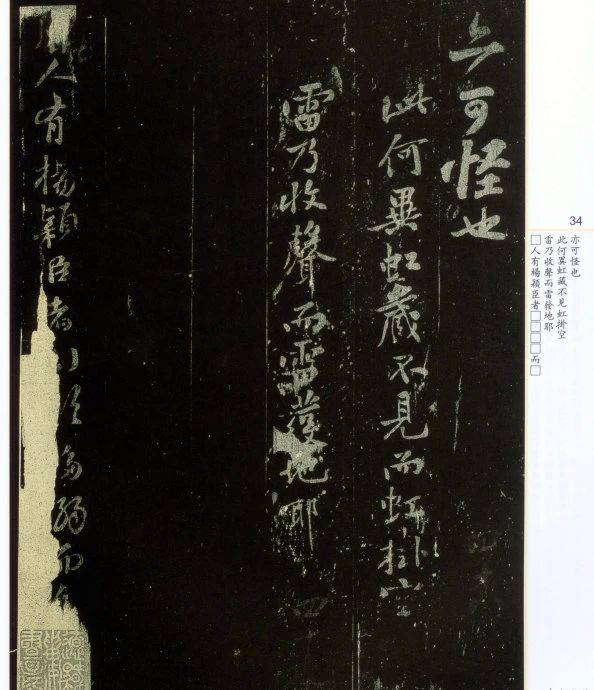 亦可怪也
此何異虹藏不見而虹掛空
雷乃收聲而雷發地耶
人有楊穎臣者
34
亦可怪也
此何異虹藏不見虹掛空
雷乃收聲而雷發地耶
□人有楊穎臣者□□□□而□